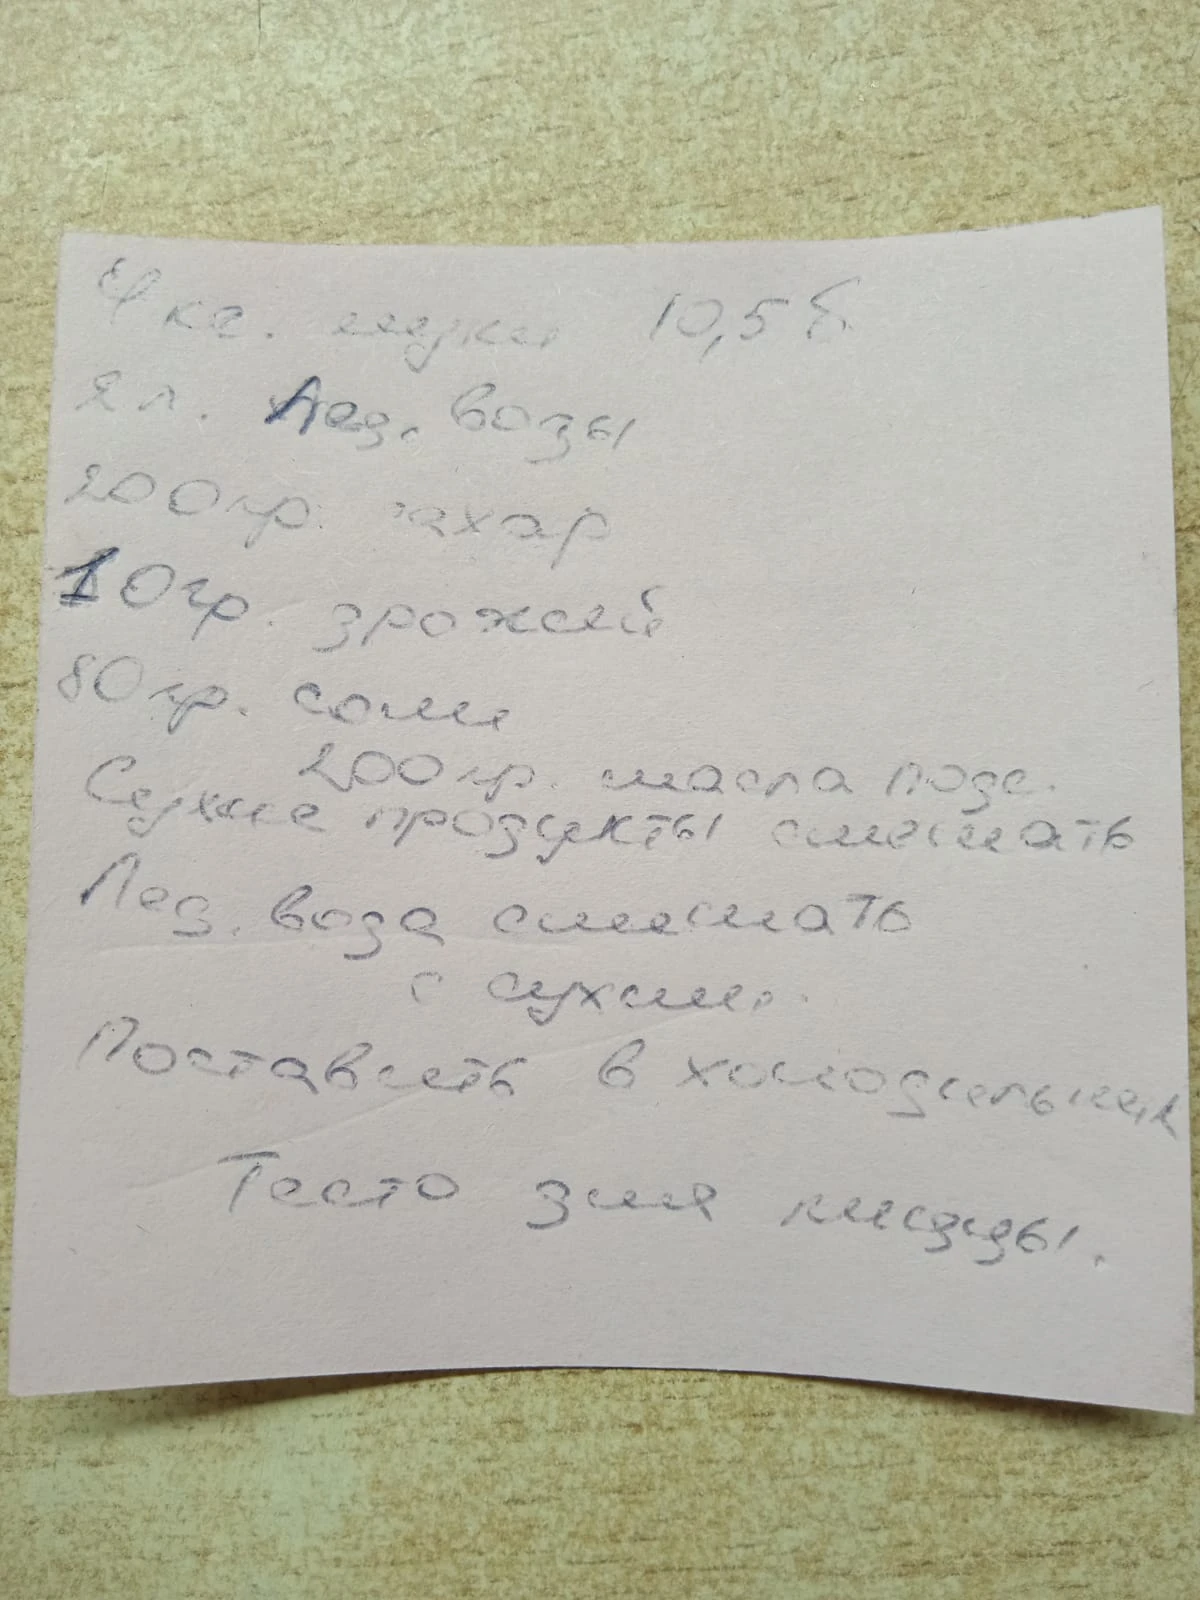 4 кг. муки 10,5 б
2 л. Лед. воды
200 гр. сахар
10 гр. дрожжей
80 гр. соли
200 гр. масла подс.
Сухие продукты смешать
Лед. вода смешать
с сухими.
Поставить в холодильник
Тесто для пиццы.